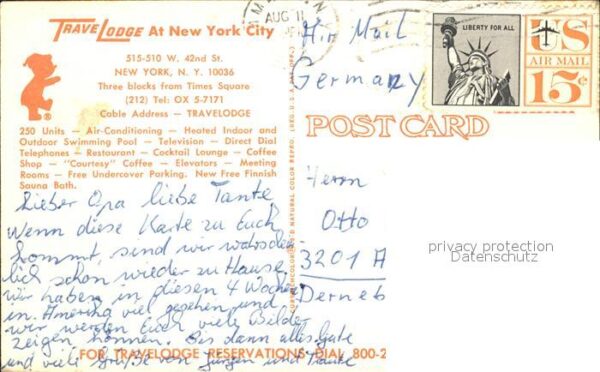 TRAVELODGE At New York City
515-510 W. 42nd St.
NEW YORK, N. Y. 10036
Three blocks from Times Square
(212) Tel: OX 5-7171
Cable Address — TRAVELODGE
250 Units — Air-Conditioning — Heated Indoor and
Outdoor Swimming Pool — Television — Direct Dial
Telephones — Restaurant — Cocktail Lounge — Coffee
Shop — "Courtesy" Coffee — Elevators — Meeting
Rooms — Free Undercover Parking. New Free Finnish
Sauna Bath.
Lieber Opa liebe Tante
Wenn diese Karte zu Euch
kommt, sind wir
lich schon wieder zu Hause,
wir haben in diesen 4 Wochen
in Amerika viel gesehen, und
wir werden Euch viele Bilder
zeigen können. Bis dann alles Gute
und viele Grüße von Jürgen und
FOR TRAVELODGE RESERVATIONS DIAL 800-2
AUG 11
Air Mail
Germany
LIBERTY FOR ALL
US
AIR MAIL
15¢
POST CARD
Herrn
Otto
3201 A
Derneb
privacy protection
Datenschutz